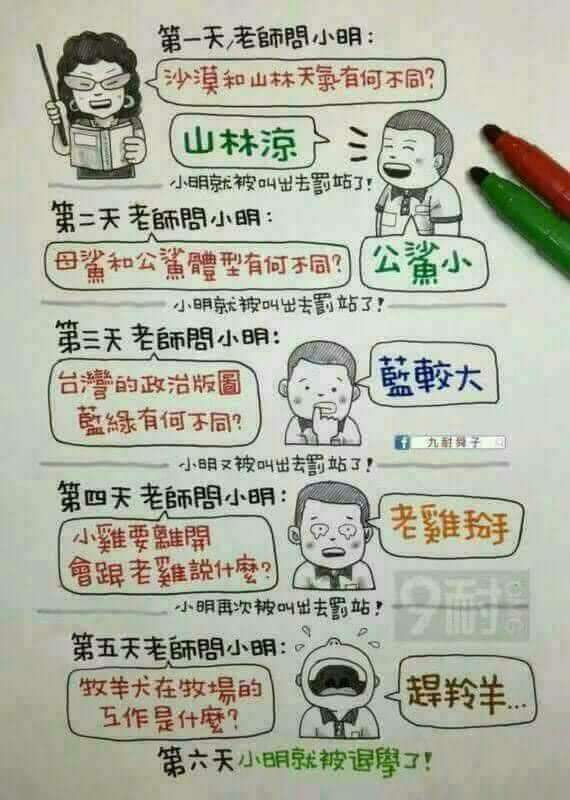 第一天,老師問小明:
沙漠和山林天氣有何不同?
山林涼
小明就被叫出去罰站了!
第二天 老師問小明:
母鯊和公鯊體型有何不同?
公鯊小
小明就被叫出去罰站了!
第三天 老師問小明:
台灣的政治版圖
藍綠有何不同?
藍較大
九耐舜子
小明又被叫出去罰站了!
第四天 老師問小明:
小雞要離開
會跟老雞說什麼?
老雞掰
9耐
小明再次被叫出去罰站!
第五天老師問小明:
牧羊犬在牧場的
工作是什麼?
趕羚羊...
第六天 小明就被退學了!